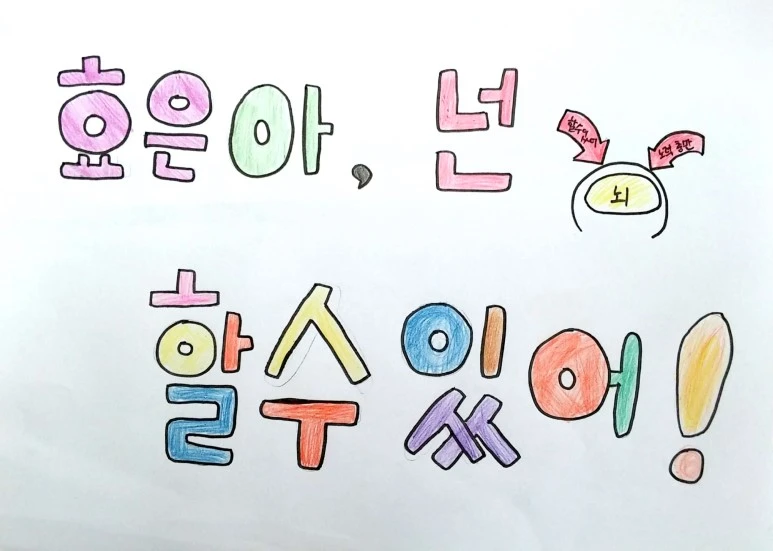 효은아, 넌
할수있어
노력 충만
뇌
할수 있어!